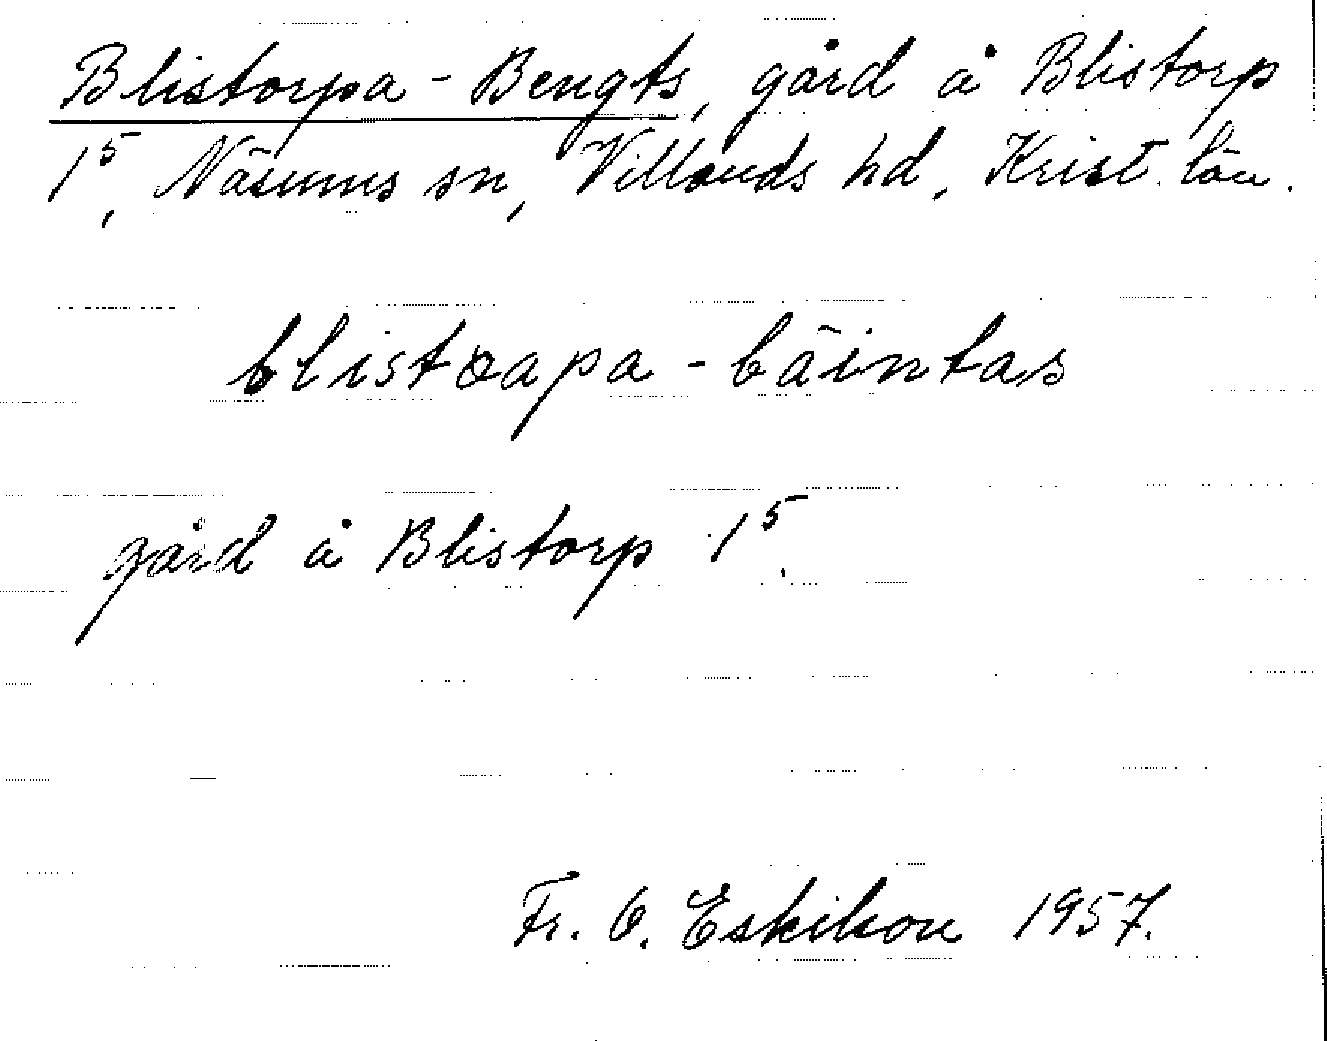 Blistorpa-Bengts, gård å Blistorp
1⁵, Näsums sn, Villands hd, Krist. län.
blistɔapa - bäintas
gård å Blistorp 1⁵.
Fr. O. Eskilson 1957.